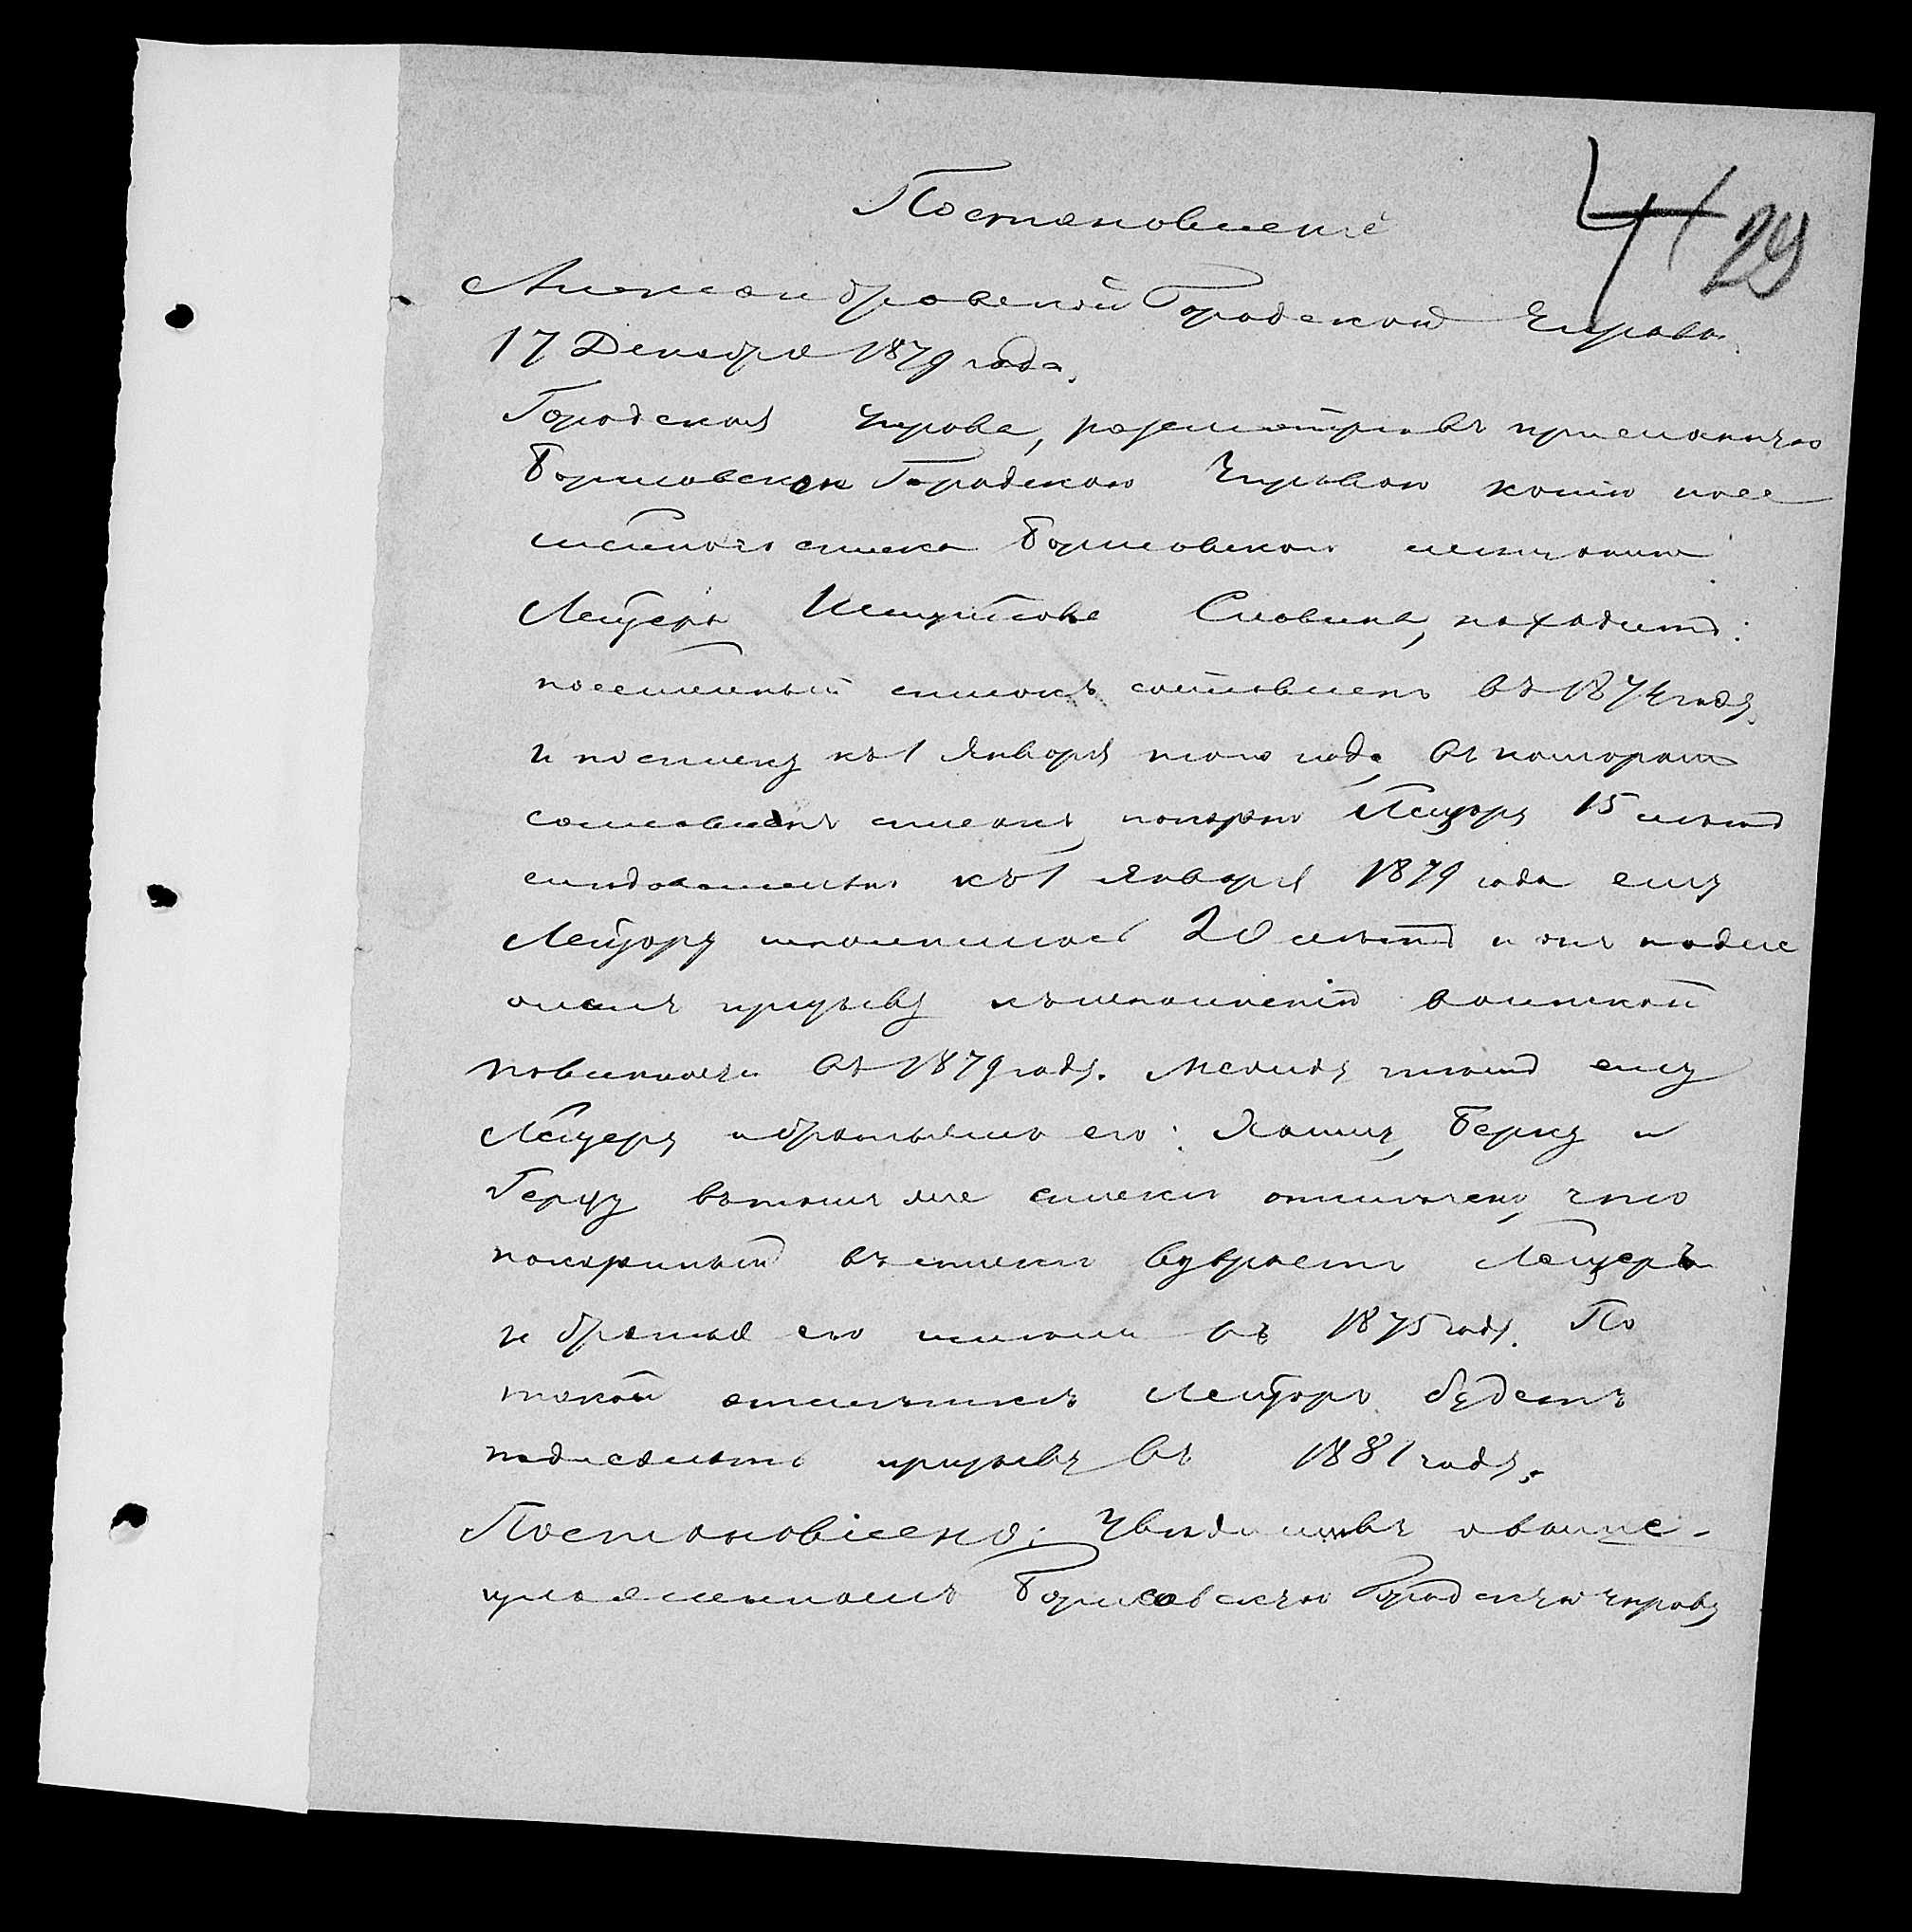 4 29
Постановленіе
Александровской Городской Управы
17 Декабря 1879 года.
Городская Управа, разсмотрѣвъ присланную
Борисовскою Городскою Управою копію посе
мейнаго списка Борисовскаго мещанина
Лейзера Словина, находитъ:
посемейный списокъ составленъ въ 1874 году
и по списку къ 1 Января того года, въ которомъ
составленъ списокъ, показано Лейзеру 15 лѣтъ
слѣдовательно къ 1 Января 1879 года ему
Лейзору исполнилось 20 лѣтъ и онъ подле
жалъ призыву къ исполненію воинской
повинности въ 1879 году. Между тѣмъ ему
Лейзеру и братьямъ его: Хаиму, Берку и
Герцу въ томъ же списки отмѣчено, что
показанный въ списки возрастъ Лейзеръ
и братья его имѣли въ 1875 году. По
такой отмѣткѣ Лейзоръ будетъ
подлежать призыву въ 1881 году.
Постановлено: Увѣдомивъ о выше-
изъясненномъ Борисовскую Городскую Управу